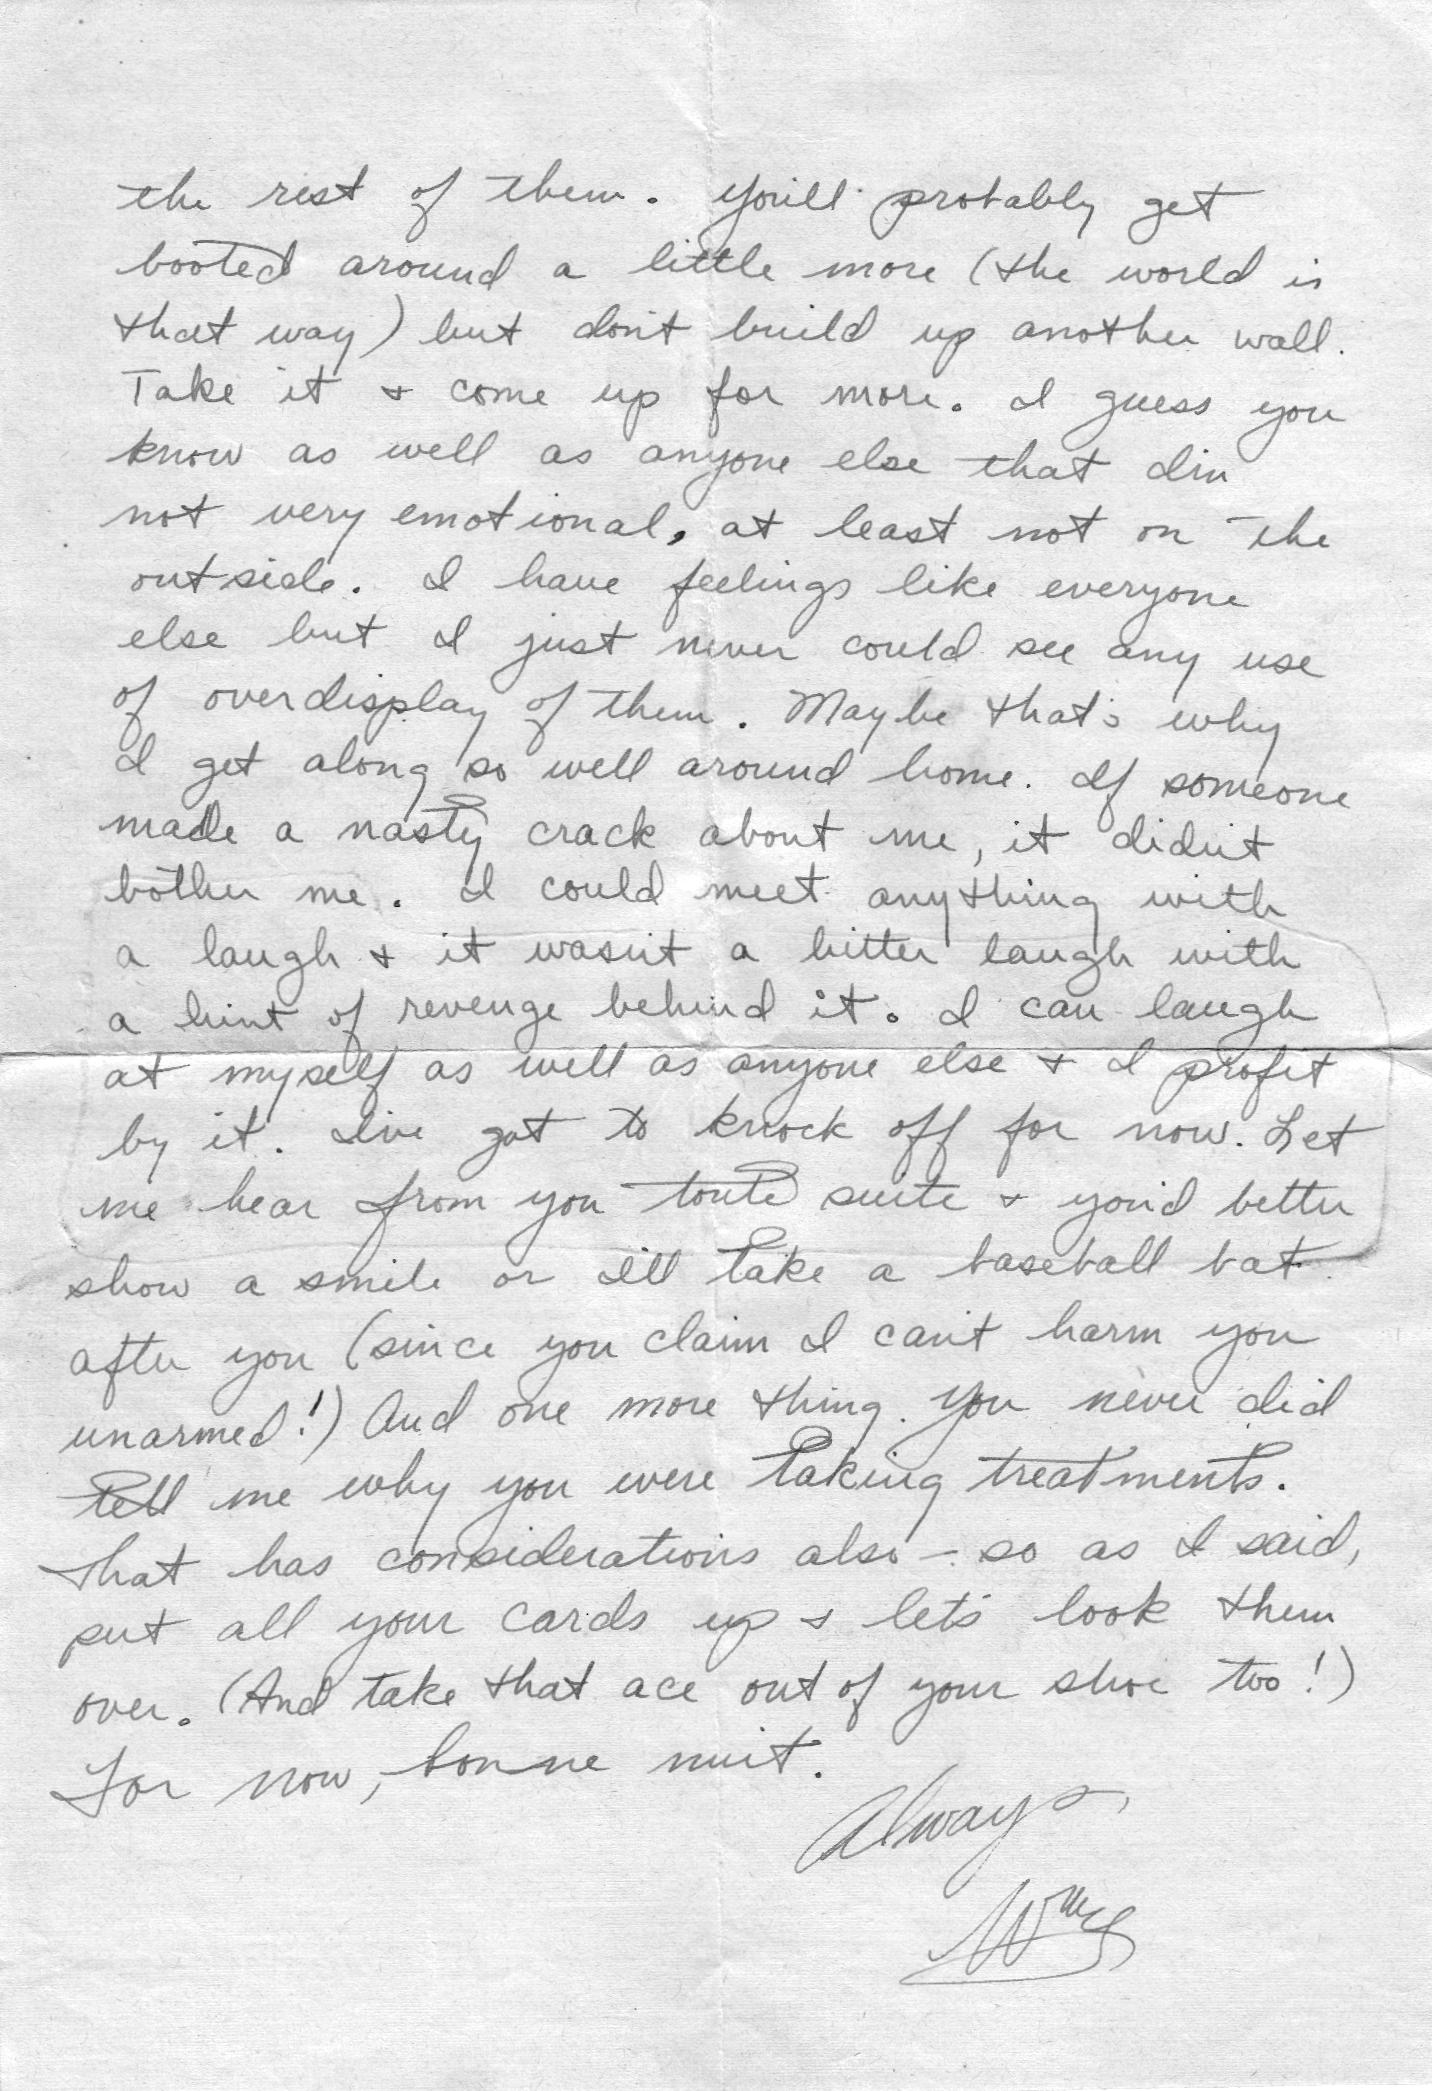 the rest of them. You'll probably get
booted around a little more (the world is
that way) but don't build up another wall.
Take it & come up for more. I guess you
know as well as anyone else that I'm
not very emotional, at least not on the
outside. I have feelings like everyone
else but I just never could see any use
of overdisplay of them. Maybe that's why
I get along so well around home. If someone
made a nasty crack about me, it didn't
bother me. I could meet anything with
a laugh & it wasn't a bitter laugh with
a hint of revenge behind it. I can laugh
at myself as well as anyone else & I profit
by it. I've got to knock off for now. Let
me hear from you toute suite & you'd better
show a smile or I'll take a baseball bat
after you (since you claim I can't harm you
unarmed!) And one more thing. You never did
tell me why you were taking treatments.
That has considerations also - so as I said,
put all your cards up & let's look them
over. (And take that ace out of your shoe too!)
For now, bonne nuit.
Always,